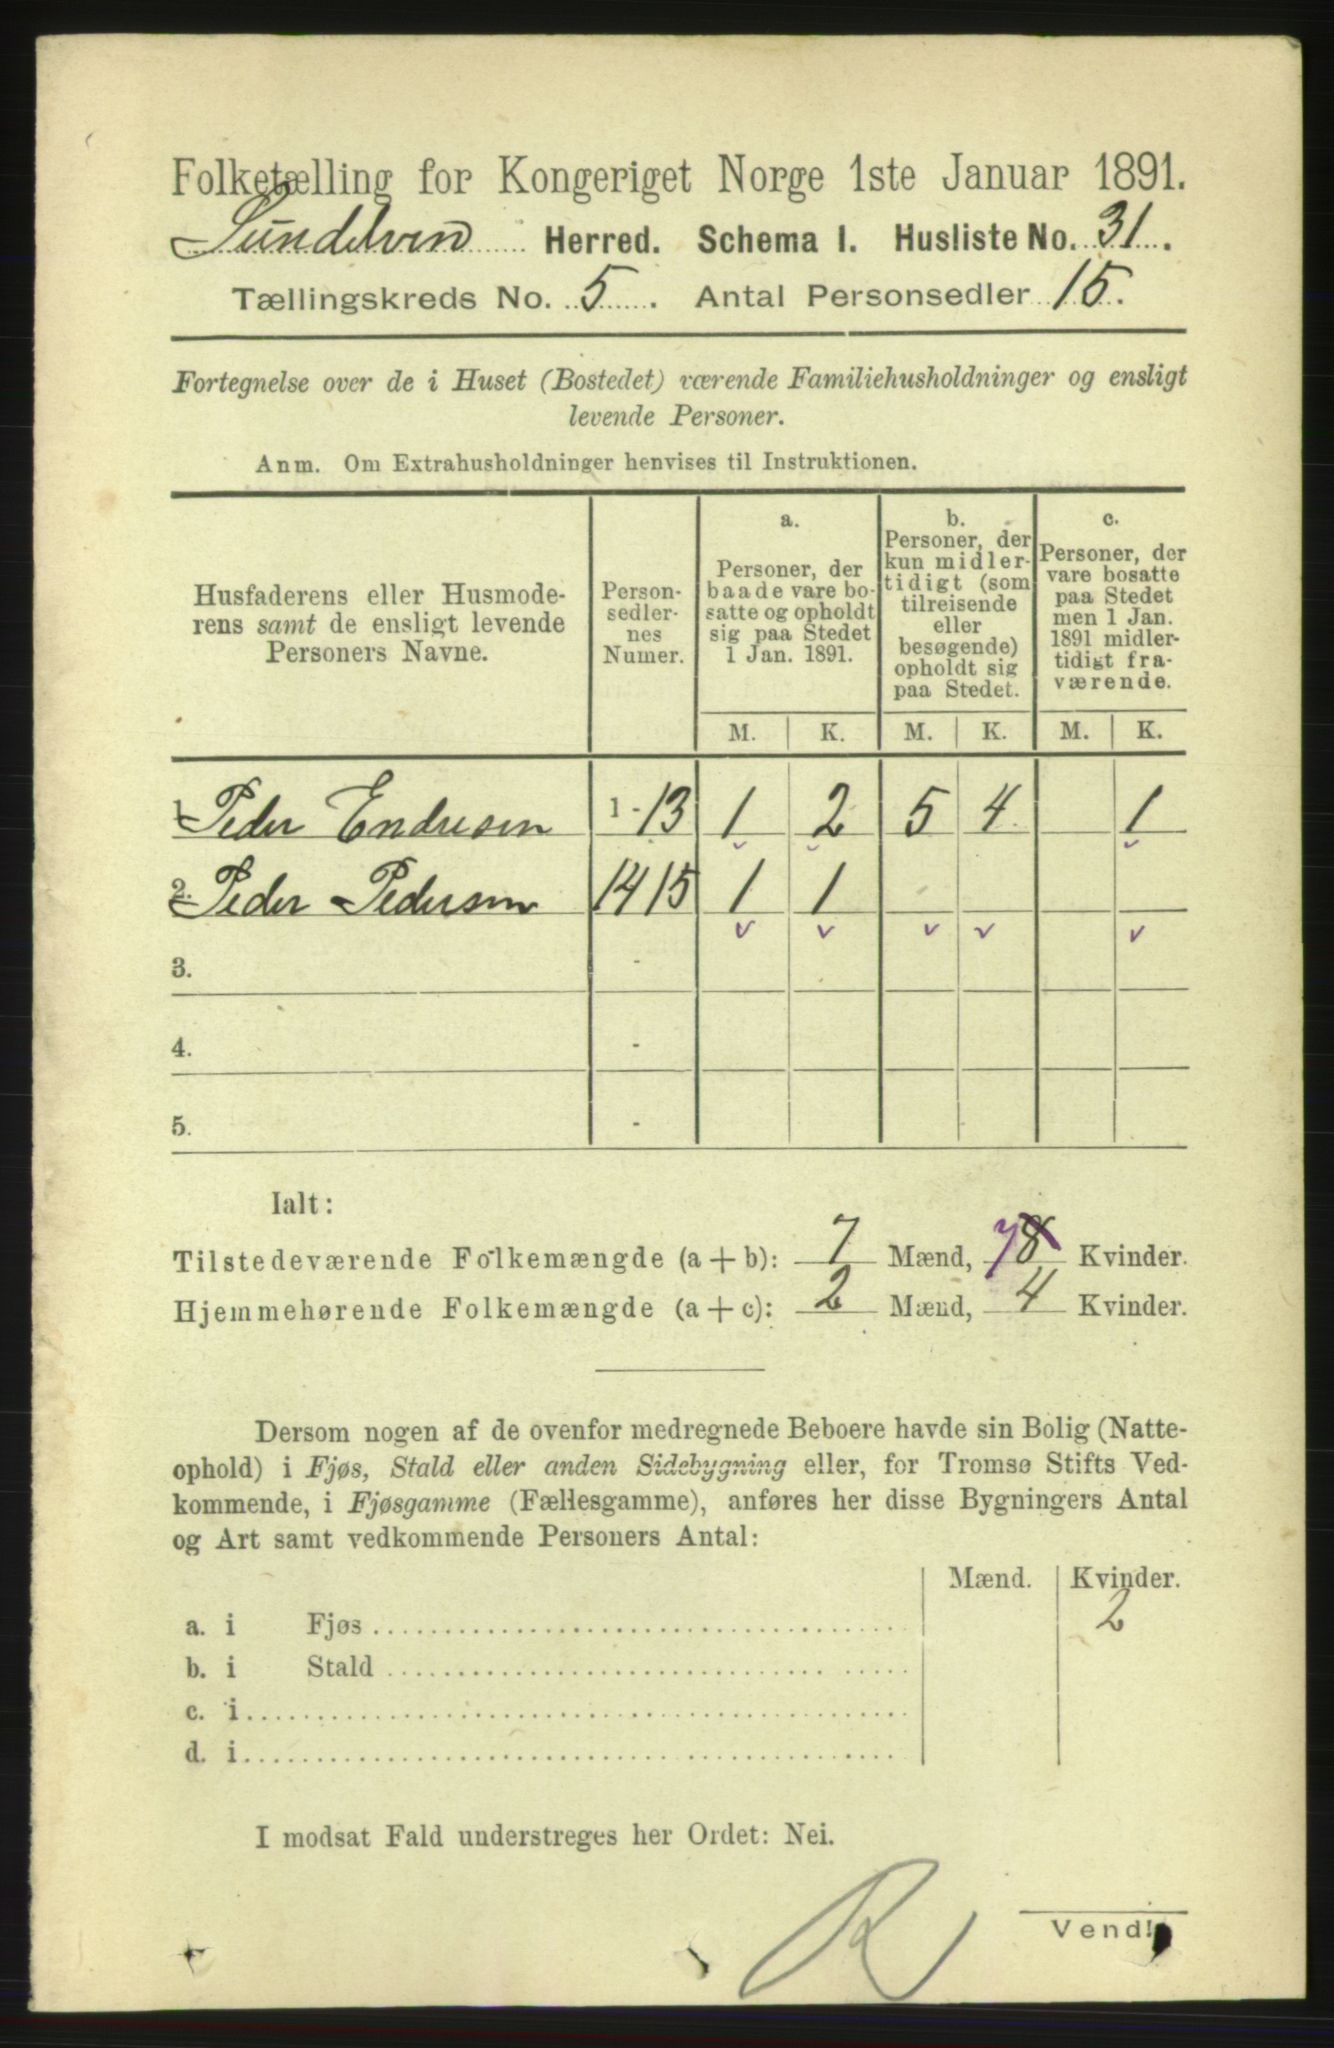 Folketælling for Kongeriget Norge 1ste Januar 1891.
Sundelven Herred. Schema I. Husliste No. 31.
Tællingskreds No. 5. Antal Personsedler 15.
Fortegnelse over de i Huset (Bostedet) værende Familiehusholdninger og ensligt
levende Personer.
Anm. Om Extrahusholdninger henvises til Instruktionen.
Husfaderens eller Husmode-
rens samt de ensligt levende
Personers Navne.
Person-
sedler-
nes
Numer.
a.
Personer, der
baade vare bo-
satte og opholdt
sig paa Stedet
1 Jan. 1891.
b.
Personer, der
kun midler-
tidigt (som
tilreisende
eller
besøgende)
opholdt sig
paa Stedet.
c.
Personer, der
vare bosatte
paa Stedet
men 1 Jan.
1891 midler-
tidigt fra-
værende.
M. K. M. K. M. K.
1. Peder Endresen 1-13 1 2 5 4 1
2. Peder Pedersen 14 15 1 1
3. -
4. -
5. -
Ialt:
Tilstedeværende Folkemængde (a + b): 7 Mænd, 7 8 Kvinder.
Hjemmehørende Folkemængde (a + c): 2 Mænd, 4 Kvinder.
Dersom nogen af de ovenfor medregnede Beboere havde sin Bolig (Natte-
ophold) i Fjøs, Stald eller anden Sidebygning eller, for Tromsø Stifts Ved-
kommende, i Fjøsgamme (Fællesgamme), anføres her disse Bygningers Antal
og Art samt vedkommende Personers Antal:
Mænd. Kvinder.
a. i Fjøs 2
b. i Stald
c. i
d. i
I modsat Fald understreges her Ordet: Nei.
R
Vend!